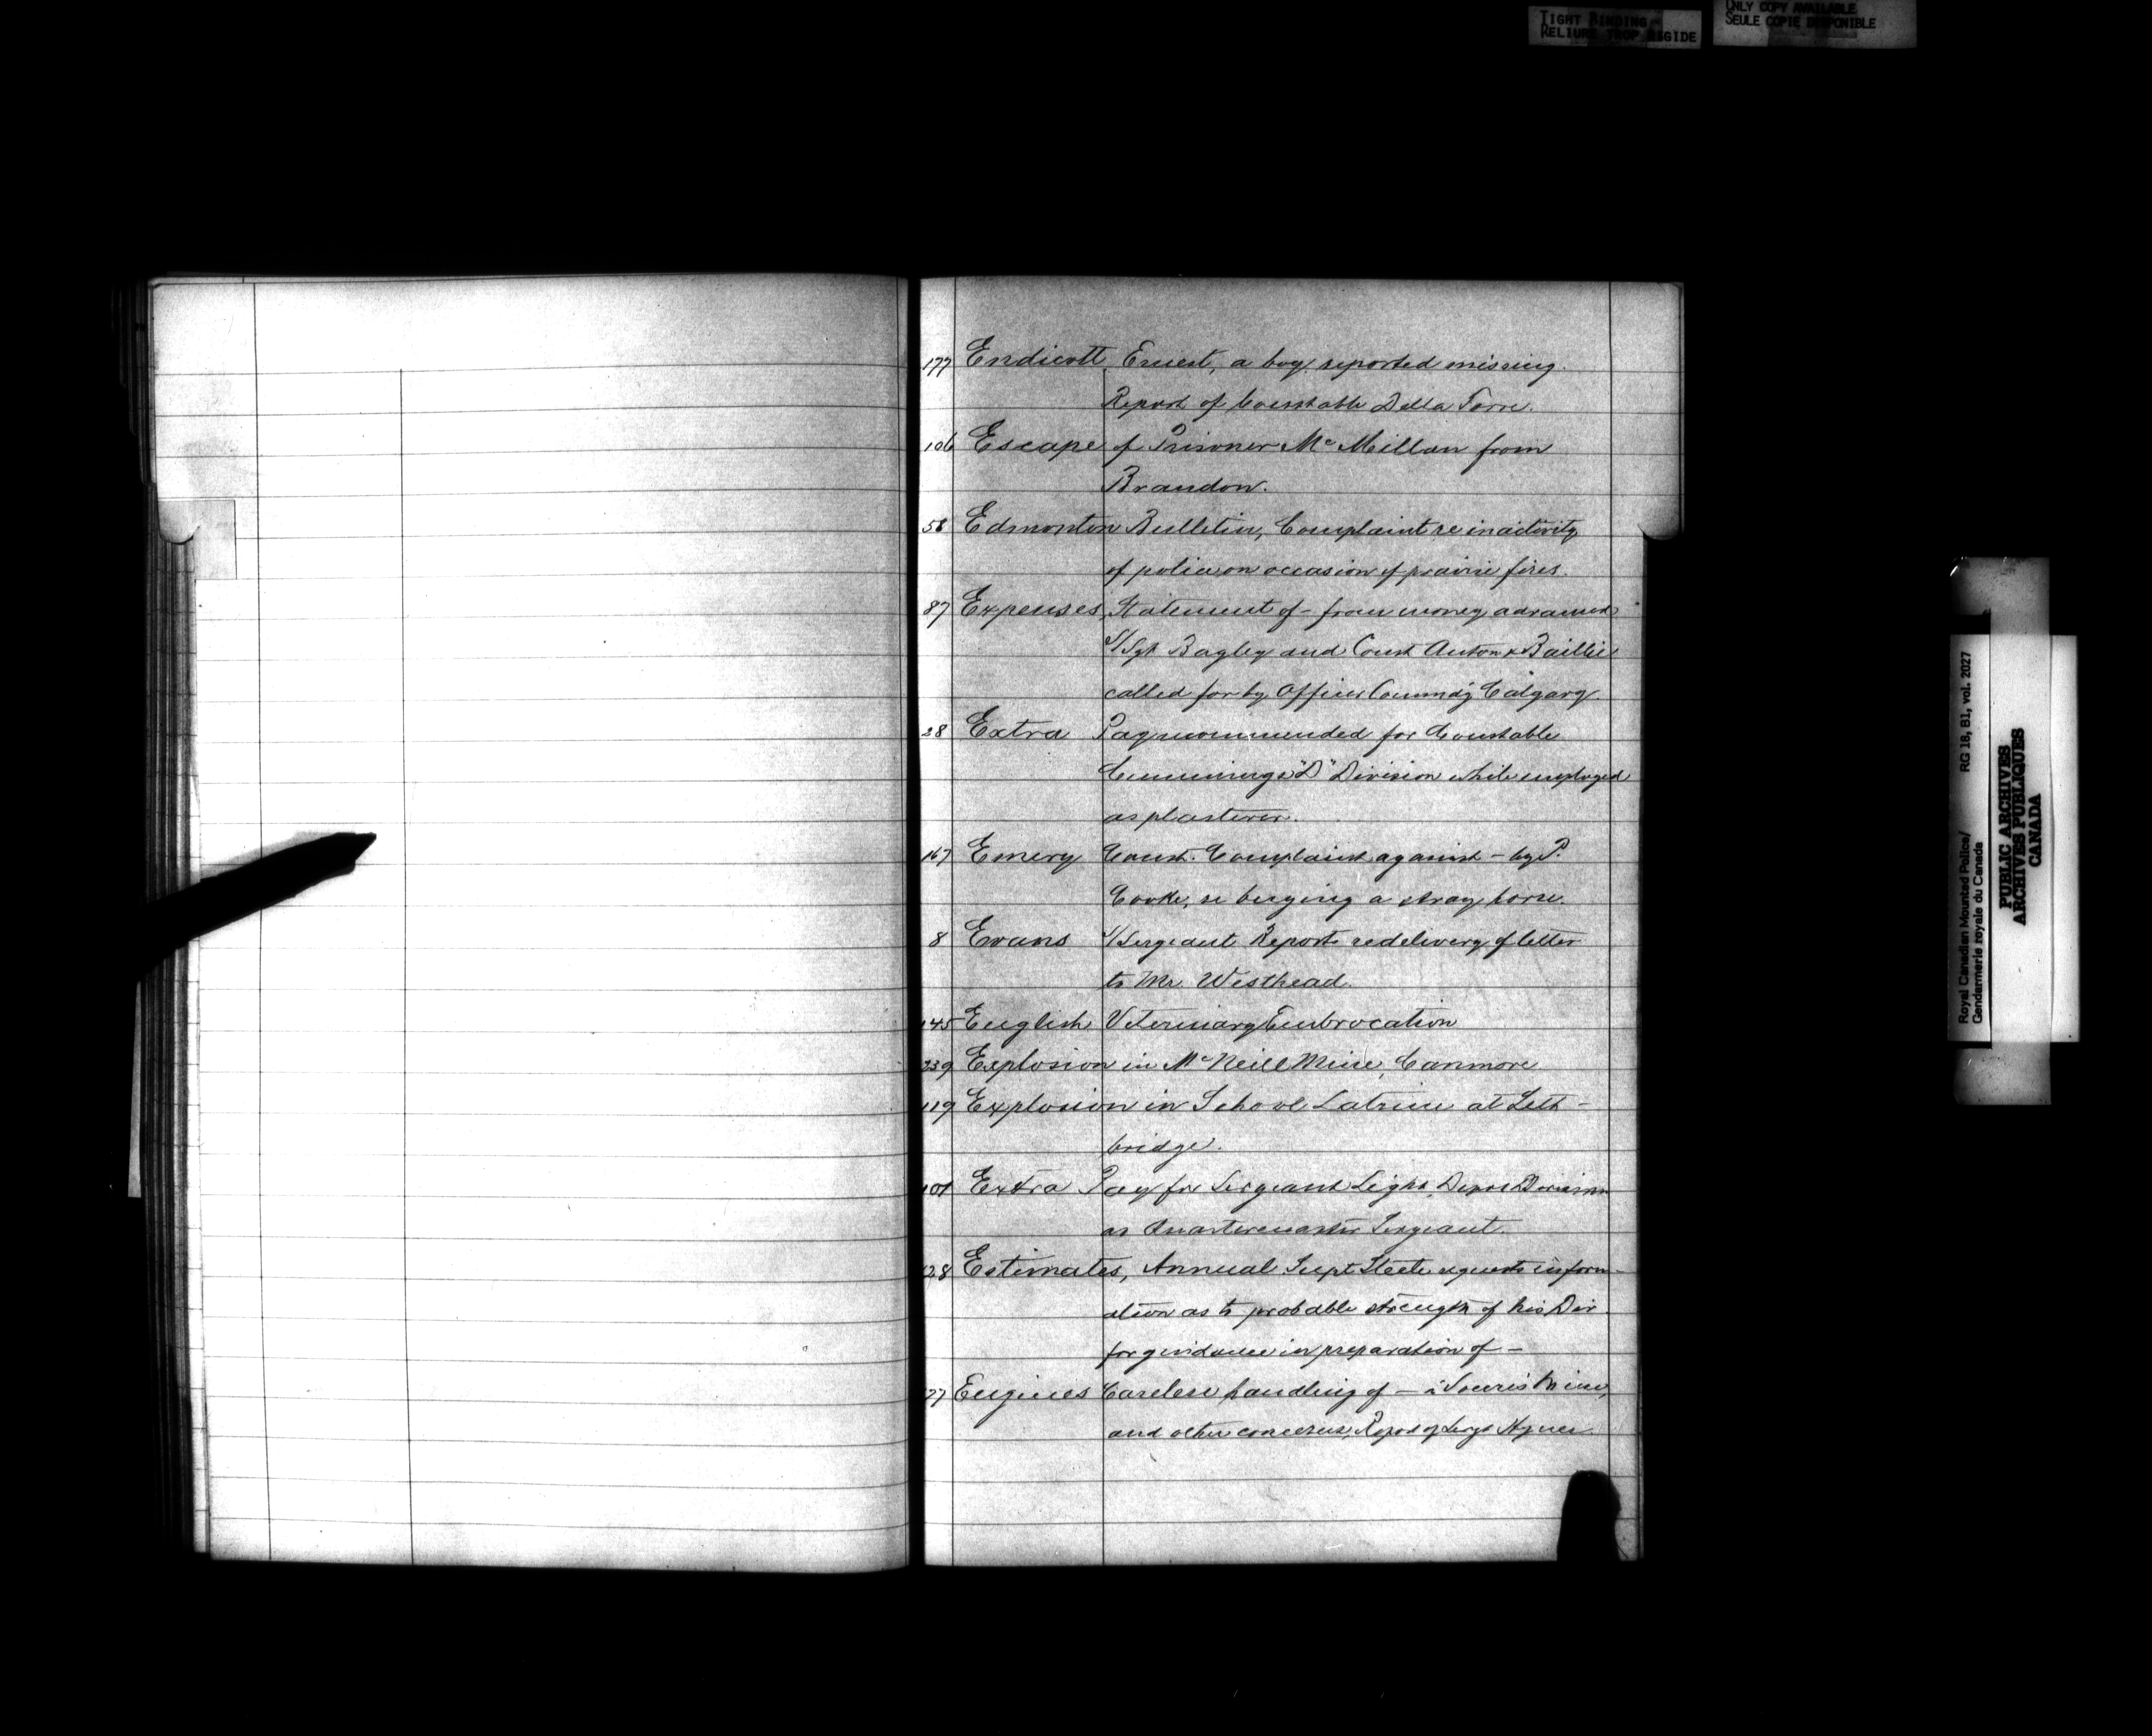 TIGHT BINDING-
RELIURE TROP RIGIDE
ONLY COPY AVAILABLE
SEULE COPIE DISPONIBLE
177 Endicott, Ernest, a boy, reported missing.
Report of Constable Della Torre.
106 Escape of Prisoner McMillan from
Brandon.
58 Edmonton Bulletin, Complaint re inactivity
of police on occasion of prairie fires.
87 Expenses, Statement of - from money advanced
S/Sgt Bagley and Const Auton & Baillie
called for by Officer Commdg Calgary.
28 Extra Pay recommended for Constable
Cummings "D" Division while employed
as plasterer.
167 Emery Const. Complaint against - by P.
Cooke, re buying a stray horse.
8 Evans S/Sergeant Reports re delivery of letter
to Mr. Westhead.
145 English Veterinary Embrocation
239 Explosion in McNeill Mine, Canmore
119 Explosion in School Latrine at Leth-
bridge.
101 Extra Pay for Sergeant Light, Depot Division
as Quartermaster Sergeant.
128 Estimates, Annual Supt Steele requests inform-
ation as to probable strength of his Div
for guidance in preparation of -
77 Engines Careless handling of - Souris Mine,
and other concerns, Report of Sergt
Royal Canadian Mounted Police/
Gendarmerie royale du Canada
RG 18, B1, vol. 2027
PUBLIC ARCHIVES
ARCHIVES PUBLIQUES
CANADA